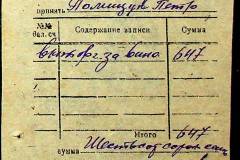 принять Полищук Петро
№№ бал. сч. Содержание записи Сумма
за вина 647
Итого 647
сумма Шестьсот сорок семь